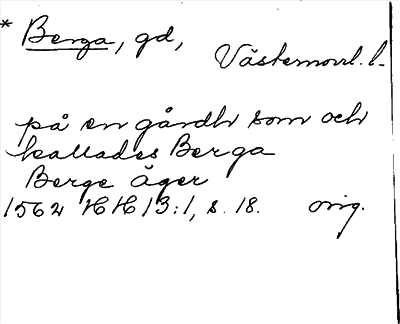 * Berga, gd,
Västernorrl. l.
på en gårdh som och
kallades Berga
Berge äger
1562 HH 13:1, s. 18. orig.